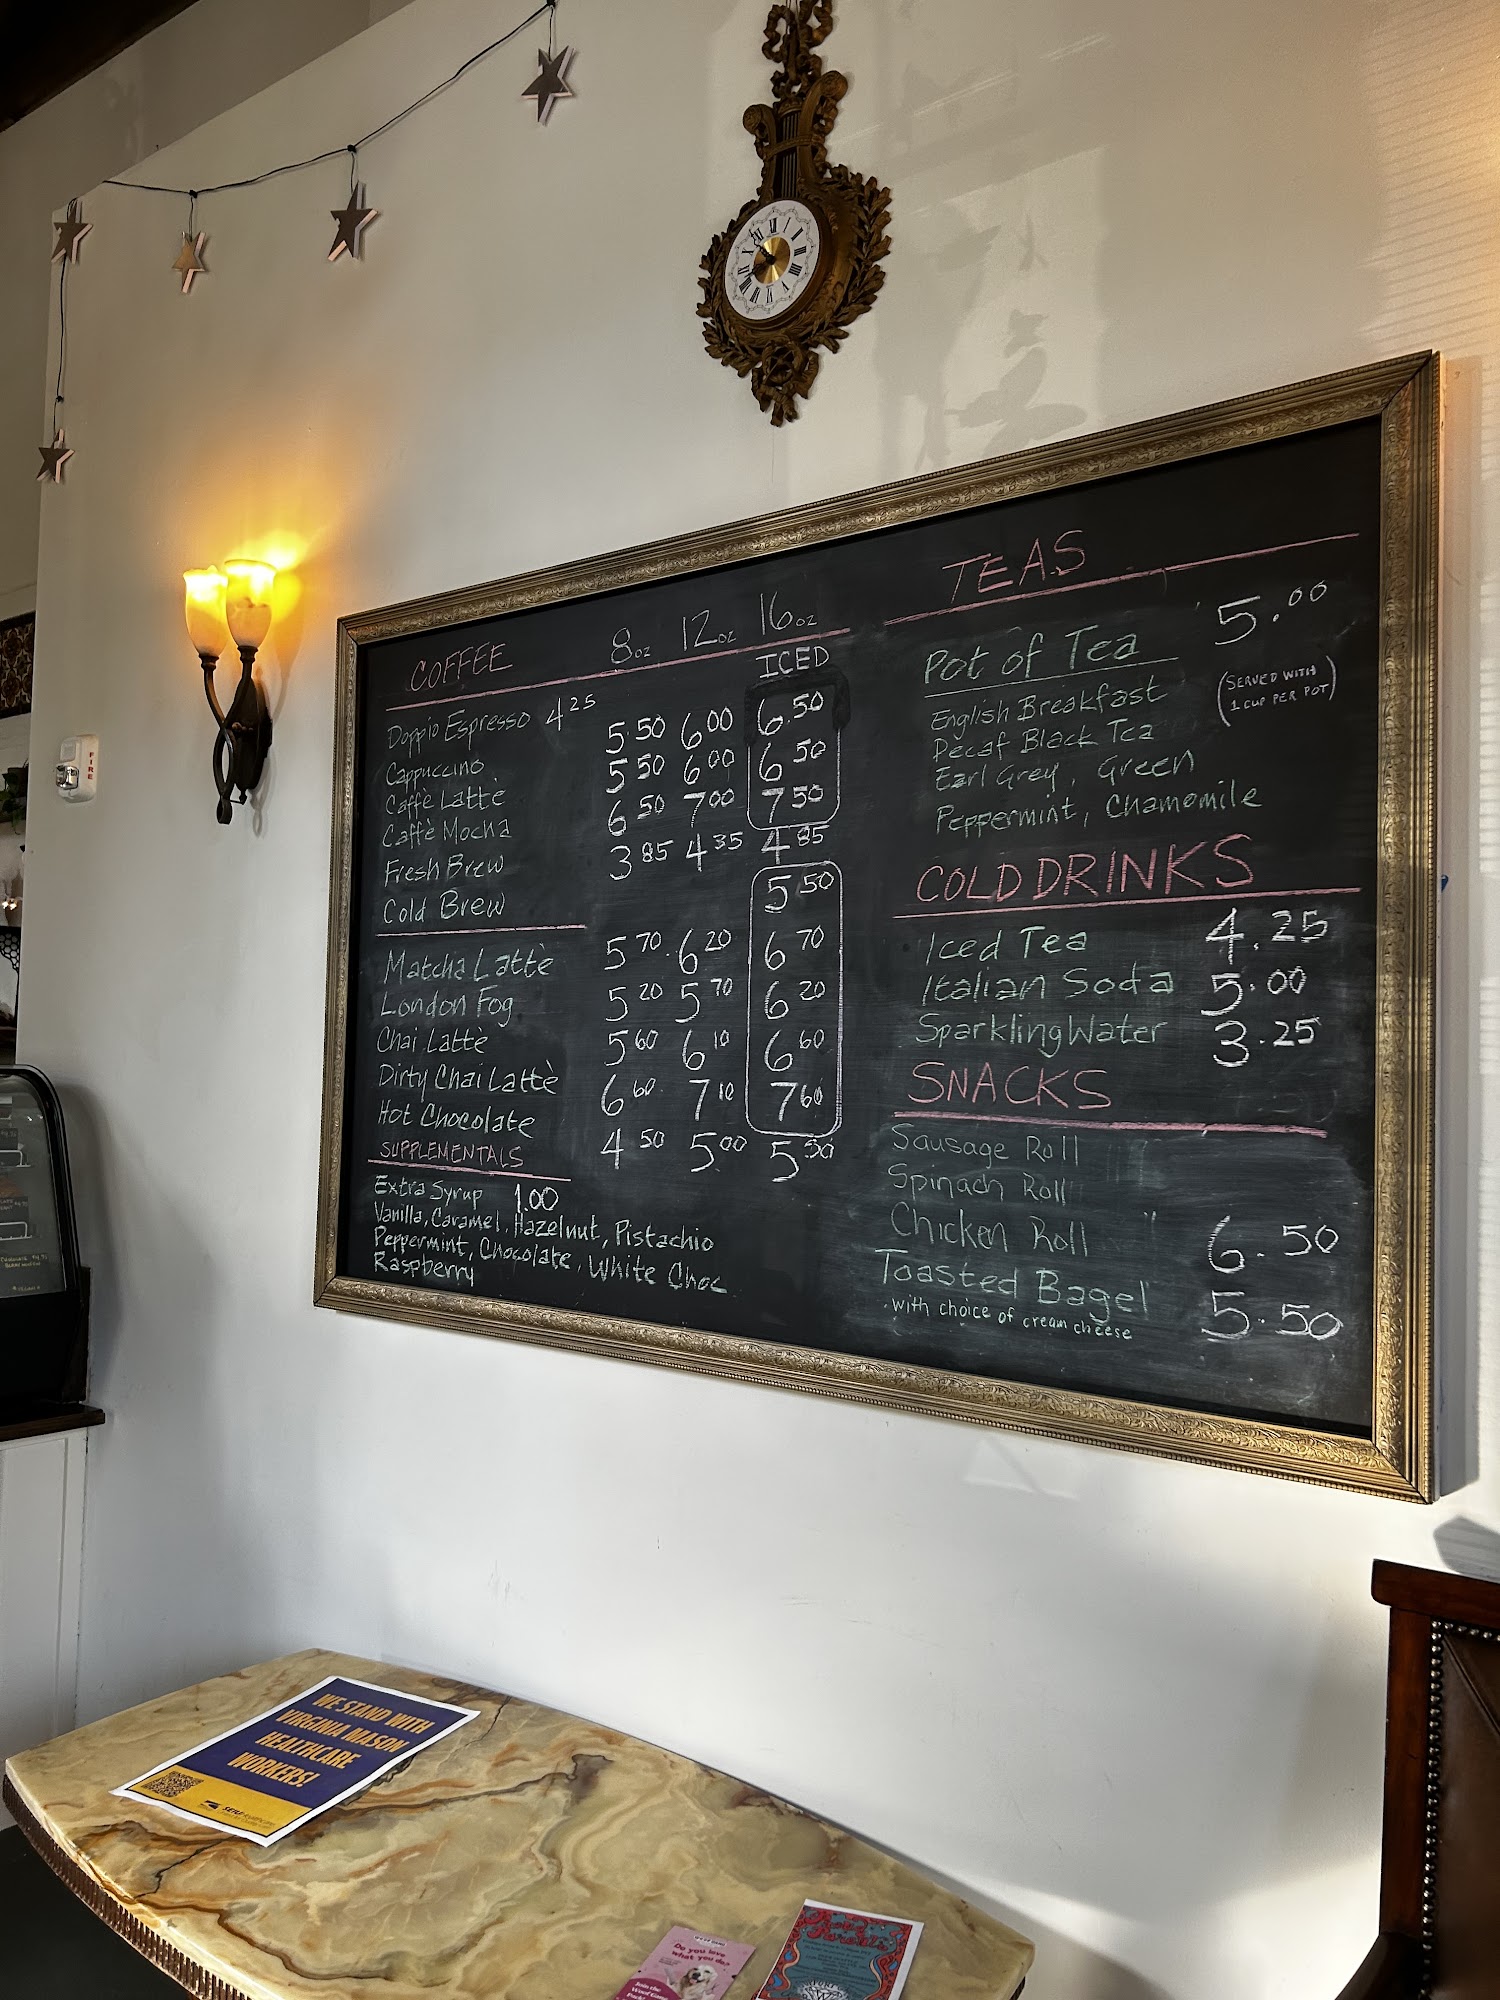 COFFEE 8oz 12oz 16oz
ICED
Doppio Espresso 4 25
Cappuccino 5 50 6 00 6.50
Caffè Latte 5 50 6 00 6 50
Caffè Mocha 6 50 7 00 7 50
Fresh Brew 3 85 4 35 4 85
Cold Brew 5 50
Matcha Lattè 5 70 6 20 6 70
London Fog 5 20 5 70 6 20
Chai Lattè 5 60 6 10 6 60
Dirty Chai Lattè 6 60 7 10 7 60
Hot Chocolate 4 50 5 00 5 50
SUPPLEMENTALS
Extra Syrup 1.00
Vanilla, Caramel, Hazelnut, Pistachio
Peppermint, Chocolate, White Choc
Raspberry
TEAS
Pot of Tea 5.00
(SERVED WITH
1 CUP PER POT)
English Breakfast
Decaf Black Tea
Earl Grey, Green
Peppermint, Chamomile
COLD DRINKS
Iced Tea 4.25
Italian Soda 5.00
Sparkling Water 3.25
SNACKS
Sausage Roll
Spinach Roll
Chicken Roll " 6.50
Toasted Bagel 5.50
. with choice of cream cheese
FIRE
WE STAND WITH
VIRGINIA MASON
HEALTHCARE
WORKERS!
SEIU Healthcare
Do you love
what you do?
Join the